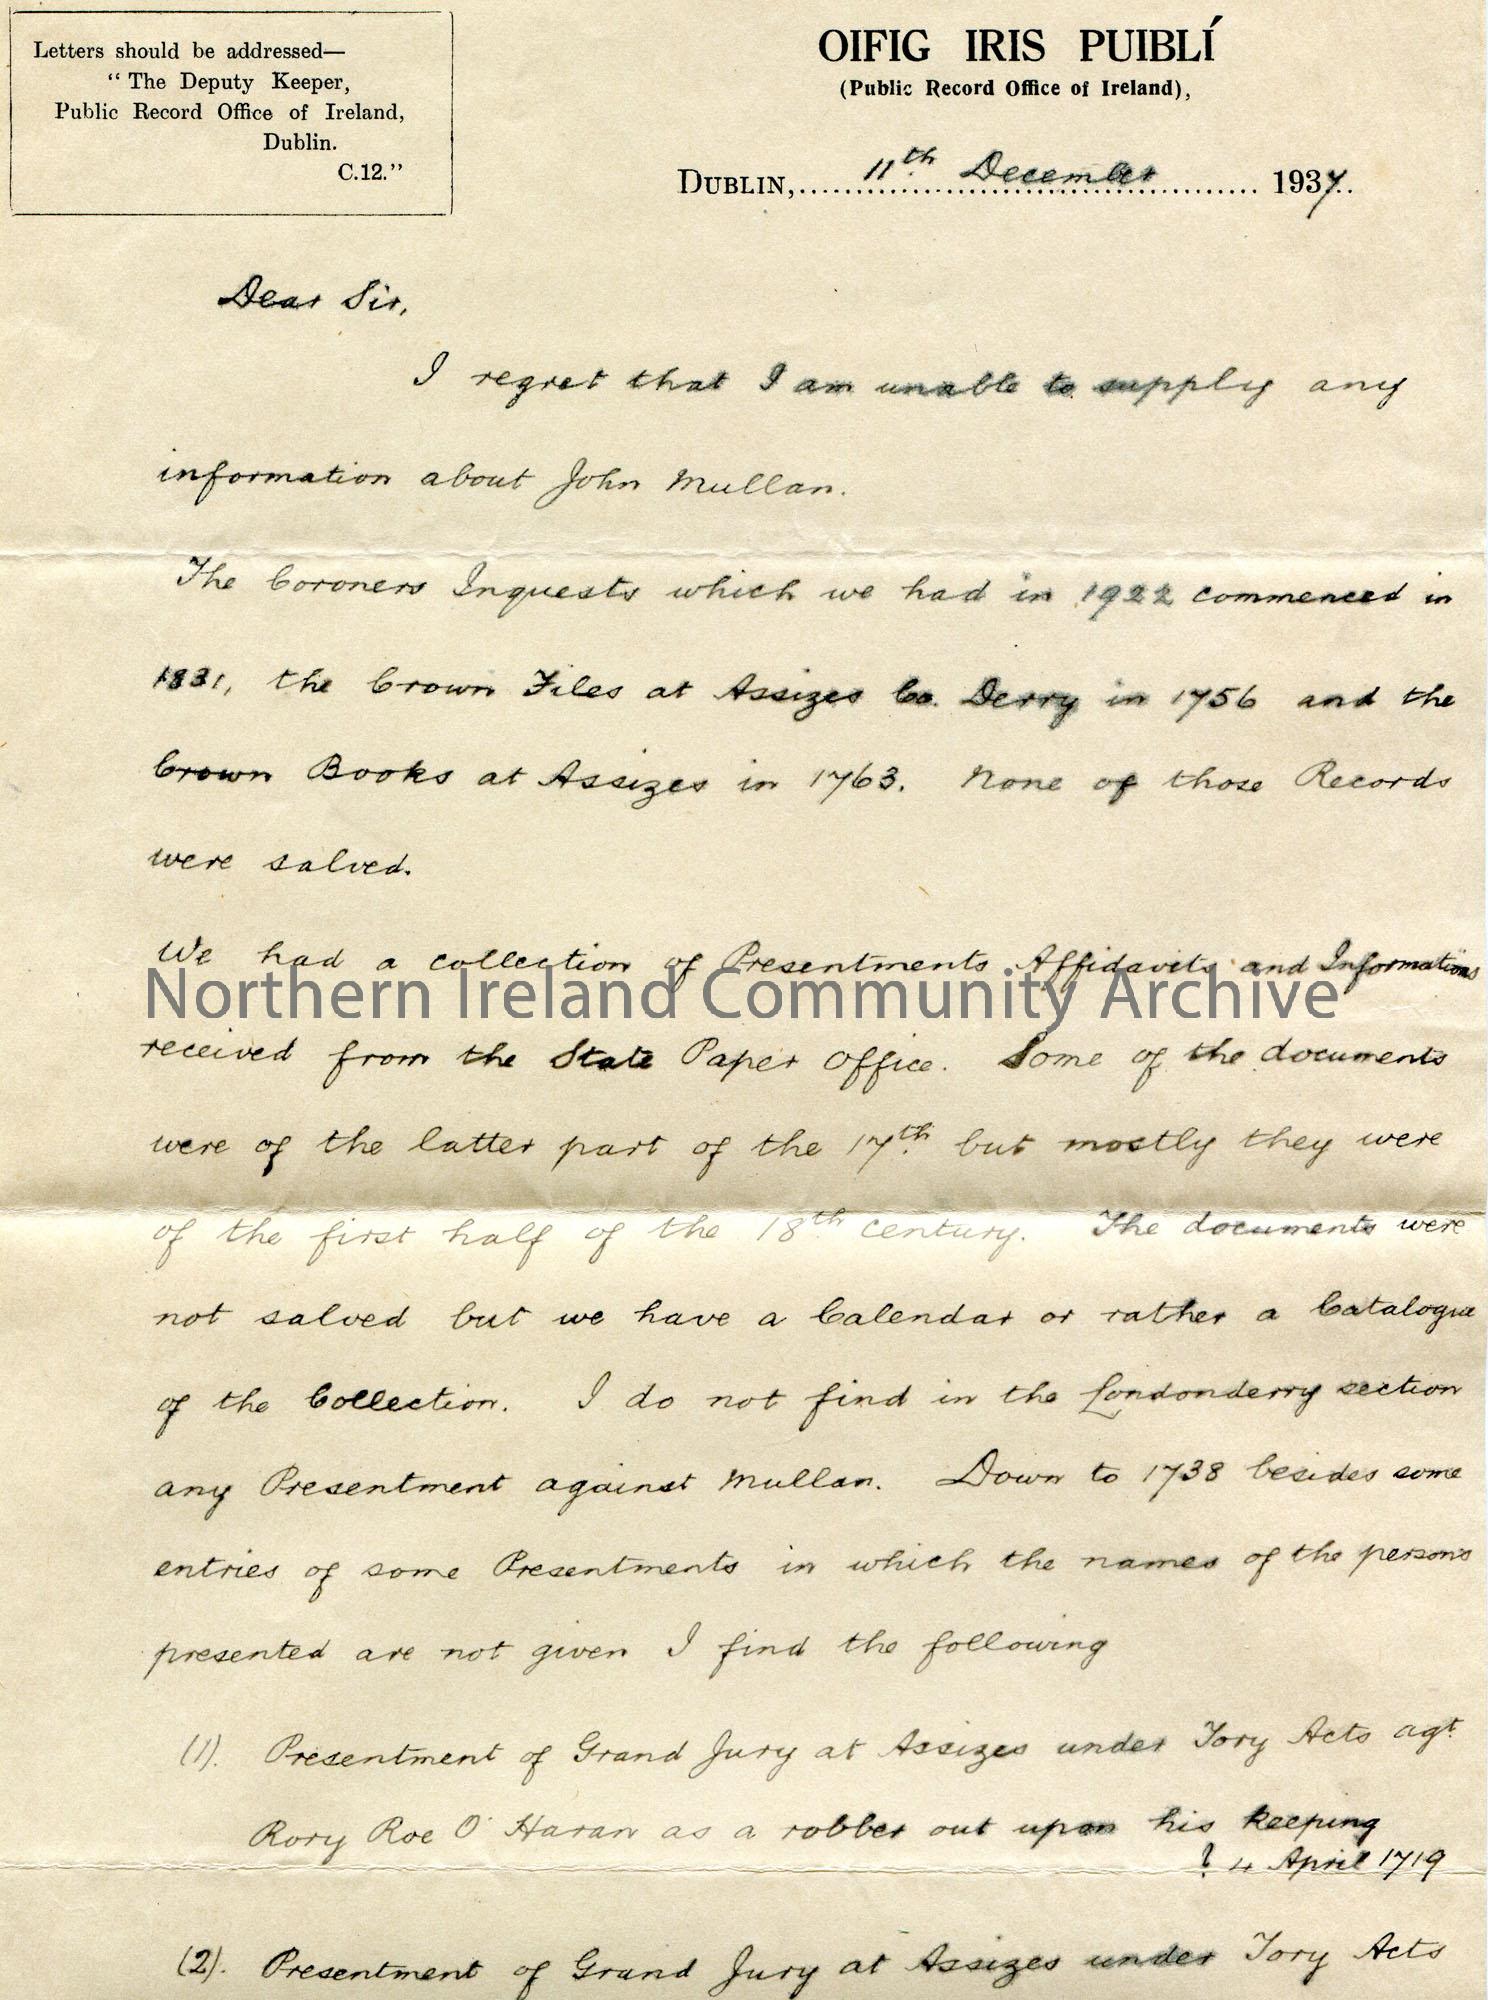 Letters should be addressed—
“ The Deputy Keeper,
Public Record Office of Ireland,
Dublin.
C.12.”
OIFIG IRIS PUIBLÍ
(Public Record Office of Ireland),
DUBLIN, 11th December 1937.
Dear Sir,
I regret that I am unable to supply any
information about John Mullan.
The Coroners Inquests which we had in 1922 commenced in
1831, the Crown Files at Assizes Co. Derry in 1756 and the
Crown Books at Assizes in 1763. None of those Records
were salved.
We had a collection of Presentments Affidavits and Informations
Northern Ireland Community Archive
received from the State Paper Office. Some of the documents
were of the latter part of the 17th but mostly they were
of the first half of the 18th century. The documents were
not salved but we have a Calendar or rather a Catalogue
of the Collection. I do not find in the Londonderry section
any Presentment against Mullan. Down to 1738 besides some
entries of some Presentments in which the names of the persons
presented are not given I find the following
(1). Presentment of Grand Jury at Assizes under Tory Acts agt.
Rory Roe O'Haran as a robber out upon his keeping
? 4 April 1719
(2). Presentment of Grand Jury at Assizes under Tory Acts